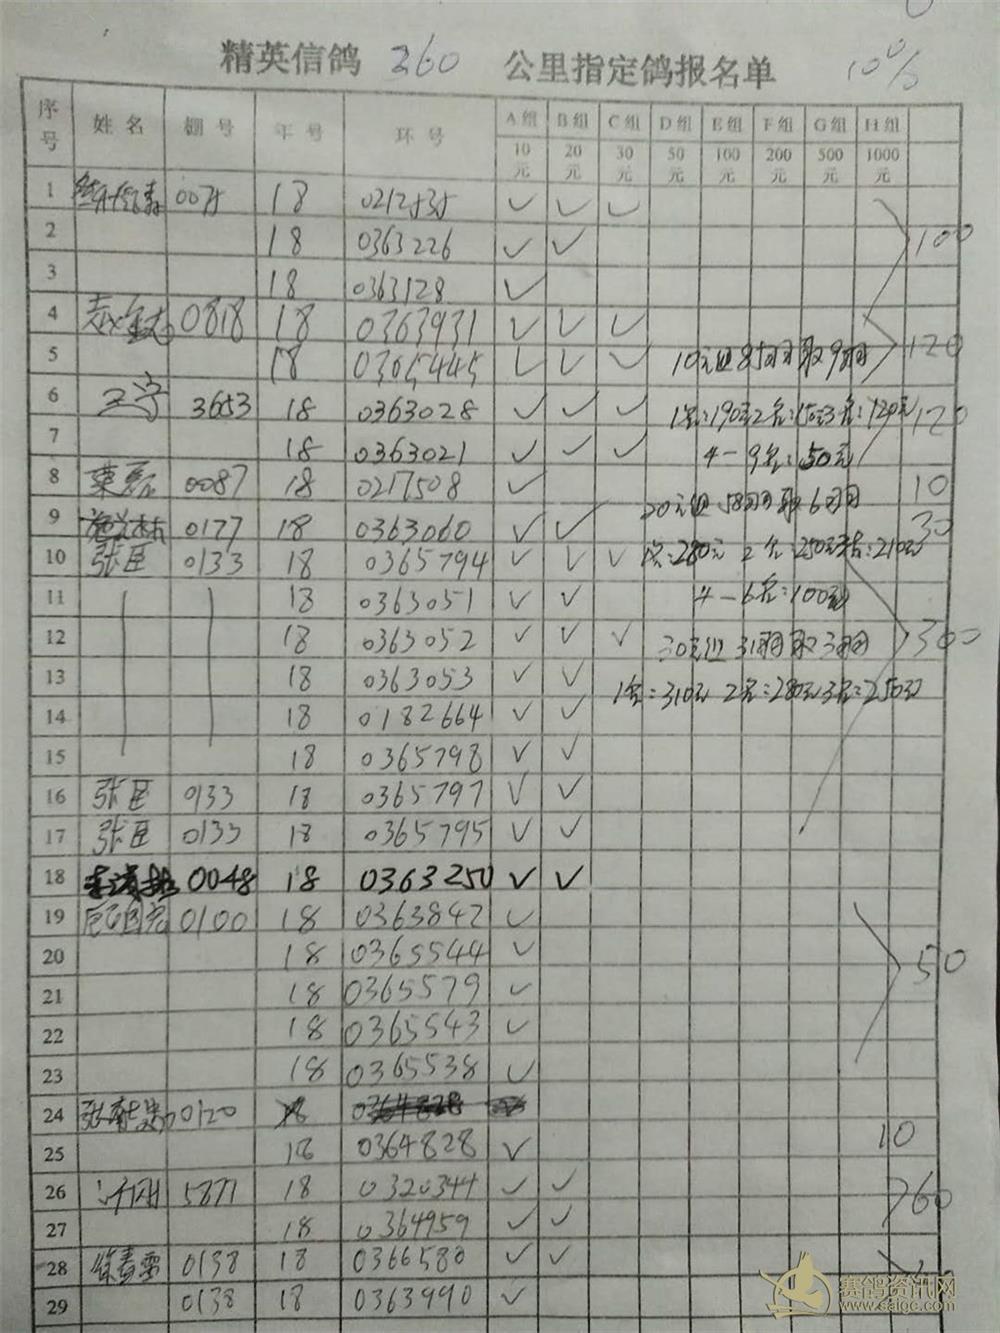 精英信鸽 360 公里指定鸽报名单 10%
序号 姓名 棚号 年号 环号 A组 B组 C组 D组 E组 F组 G组 H组
10元 20元 30元 50元 100元 200元 500元 1000元
1 18 0212535 ✓ ✓ ✓
2 18 0363226 ✓ ✓ 100
3 18 0363128 ✓
4 0818 18 0363931 ✓ ✓ ✓
5 18 0365445 ✓ ✓ ✓ 10元组85羽取9羽 120
6 王宇 3653 18 0363028 ✓ ✓ ✓ 1名:190元2名:150元3名:120元 120
7 18 0363021 ✓ ✓ ✓ 4-9名:50元
8 0087 18 0217508 ✓ 10
20元组58羽取6羽
9 0177 18 0363060 ✓ ✓ 30
10 张臣 0133 18 0365794 ✓ ✓ ✓ 1名:280元 2名:250元3名:210元
11 18 0363051 ✓ ✓ 4-6名:100元
12 18 0363052 ✓ ✓ ✓ 30元组31羽取3羽 300
13 18 0363053 ✓ ✓ 1名:310元2名:280元3名:250元
14 18 0182664 ✓ ✓
15 18 0365798 ✓ ✓
16 张臣 0133 18 0365797 ✓ ✓
17 张臣 0133 18 0365795 ✓ ✓
18 0048 18 0363250 ✓ ✓
19 0100 18 0363842 ✓
20 18 0365544 ✓ 50
21 18 0365579 ✓
22 18 0365543 ✓
23 18 0365538 ✓
24 0120 18
25 18 0364828 ✓ 10
26 5871 18 0320344 ✓ ✓ 60
27 18 0364959 ✓ ✓
28 徐春雷 0138 18 0366580 ✓ ✓
29 0138 18 0363990 ✓
赛鸽资讯网
www.saigc.com